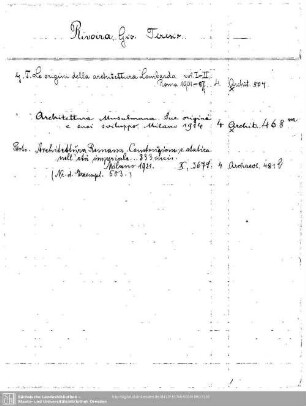 Rivoira, Gio. Teresio
G. T. Le origini della architettura Lombarda vol. I-II
Roma 1901-07. 4 Archit.
Architettura Musulmana Sue origini
e suoi sviluppo. Milano 1914 4 Archit. 468 m
Architettura Romana. Costruzione e statica
nell' età imperiale... 333 incis.
Milano 1921. X, 267S. 4 Archaeol. 481
(Nr. d. Exempl. 503.)
Sächsische Landesbibliothek -
Staats- und Universitätsbibliothek Dresden